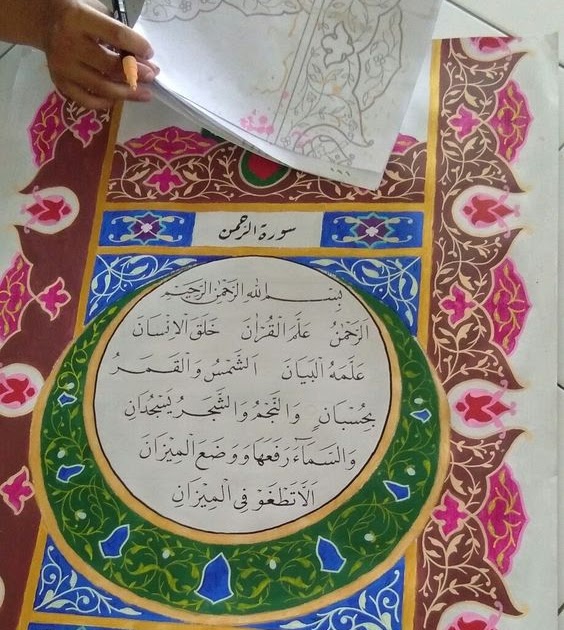 سورة الرحمن
بِسْمِ اللهِ الرَّحْمٰنِ الرَّحِيْمِ
الرَّحْمٰنُ عَلَّمَ الْقُرْاٰنَ خَلَقَ الْاِنْسَانَ
عَلَّمَهُ الْبَيَانَ الشَّمْسُ وَالْقَمَرُ
بِحُسْبَانٍ وَالنَّجْمُ وَالشَّجَرُ يَسْجُدَانِ
وَالسَّمَآءَ رَفَعَهَا وَوَضَعَ الْمِيْزَانَ
اَلَّا تَطْغَوْا فِى الْمِيْزَانِ